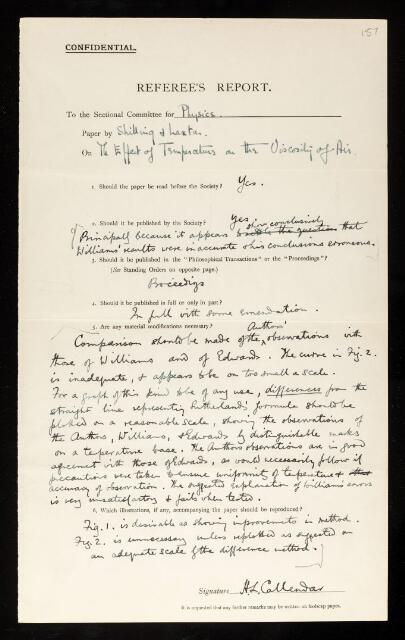 157
CONFIDENTIAL.
REFEREE'S REPORT.
To the Sectional Committee for Physics.
Paper by Shilling & Laxton.
On The Effect of Temperature on the Viscosity of Air.
1. Should the paper be read before the Society? Yes.
2. Should it be published by the Society? Yes
Principally because it appears to show conclusively that
Williams' results were inaccurate & his conclusions erroneous.
3. Should it be published in the "Philosophical Transactions" or the "Proceedings"?
(See Standing Orders on opposite page.)
Proceedigs
4. Should it be published in full or only in part?
In full with some emendation.
5. Are any material modifications necessary?
Comparison should be made of the Authors' observations with
those of Williams and of Edwards. The curve in Fig. 2.
is inadequate, & appears to be on too small a scale.
For a graph of this kind to be of any use, differences from the
straight line representing Sutherland's formula should be
plotted on a reasonable scale, showing the observations of
the Authors, Williams, & Edwards by distinguishable marks
on a temperature base. The Authors observations are in good
agreement with those of Edwards, as would necessarily follow if
precautions were taken to ensure uniformity of temperature &
accuracy of observation. The suggested explanation of Williams's errors
is very unsatisfactory & fails when tested.
6. Which illustrations, if any, accompanying the paper should be reproduced?
Fig. 1. is desirable as showing improvements in method.
Fig. 2. is unnecessary unless replotted as suggested on
an adequate scale by the difference method.
Signature H. L. Callendar
It is requested that any further remarks may be written on foolscap paper.